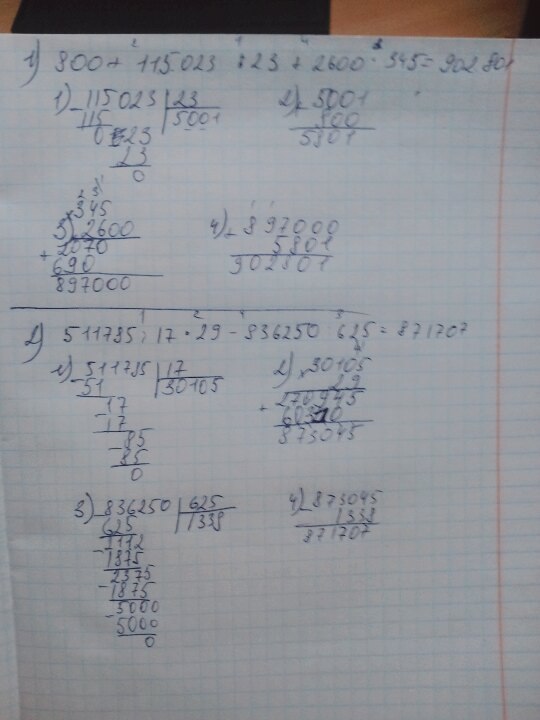 1) 800 + 115023 : 23 + 2600 · 345 = 902801
1) 115023 | 23
115 5001
0 23
23
0
2) 5001
800
5801
3) 345
2600
+ 2070
690
897000
4) 897000
5801
902801
2) 511785 : 17 · 29 - 836250 : 625 = 871707
1) 511785 | 17
51 30105
- 17
17
- 85
85
0
2) × 30105
29
+ 270945
60210
873045
3) - 836250 | 625
625 1338
- 2112
1875
- 2375
1875
- 5000
5000
0
4) - 873045
1338
871707